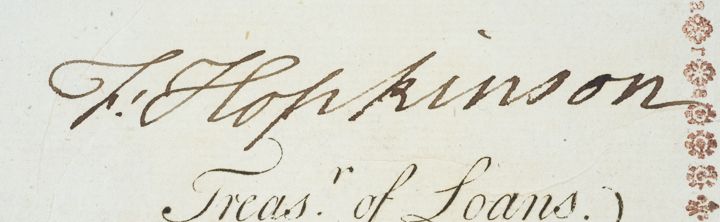 F. Hopkinson
Treas.r of Loans.)